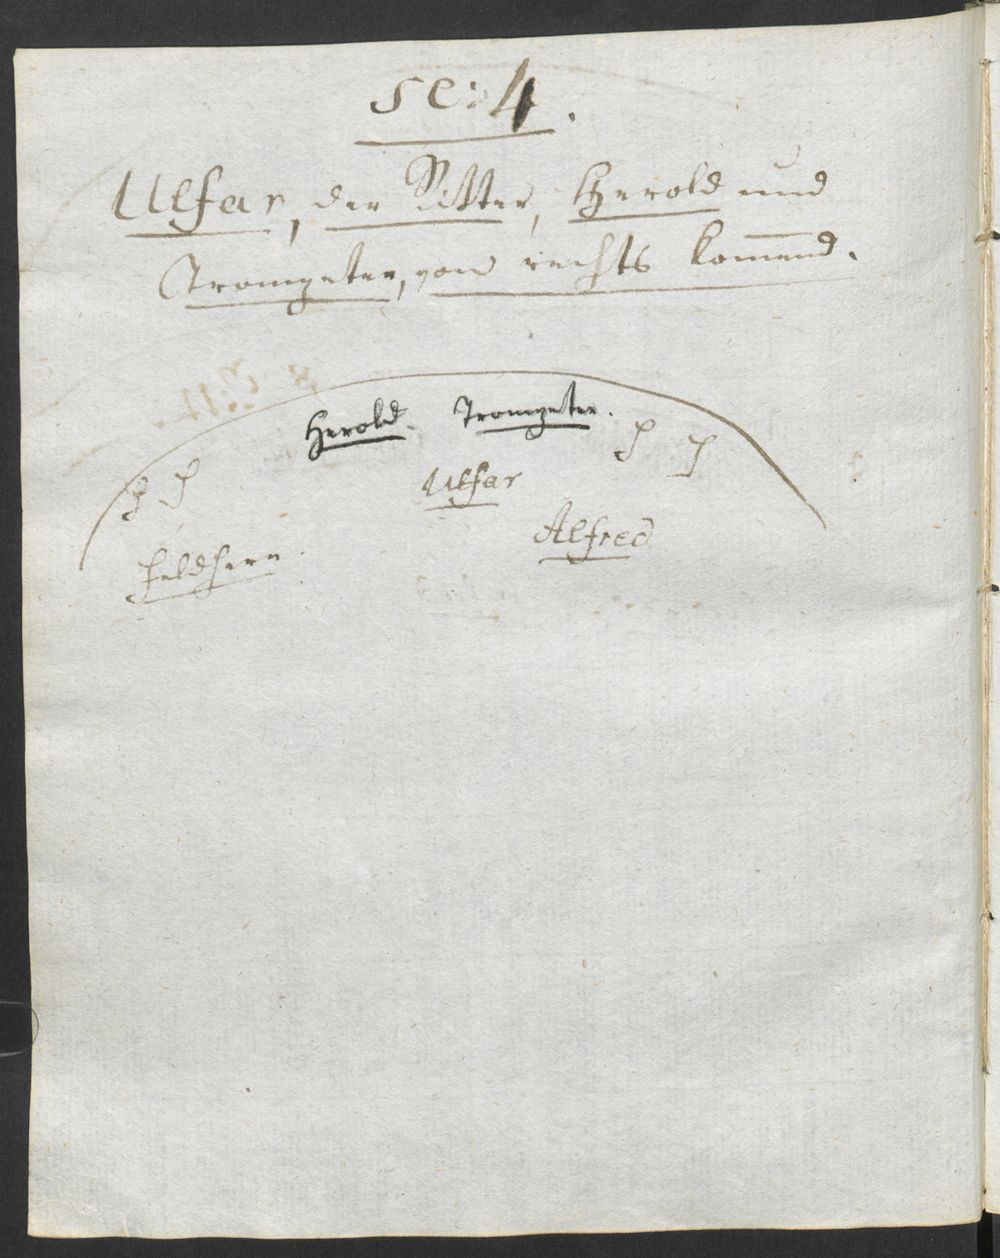 Sc: 4.
Ulfar, der Ritter, Herold und
Trompeter, von rechts kom̅end.
Herold. Trompeter.
Ulfar
Alfred
Feldherr